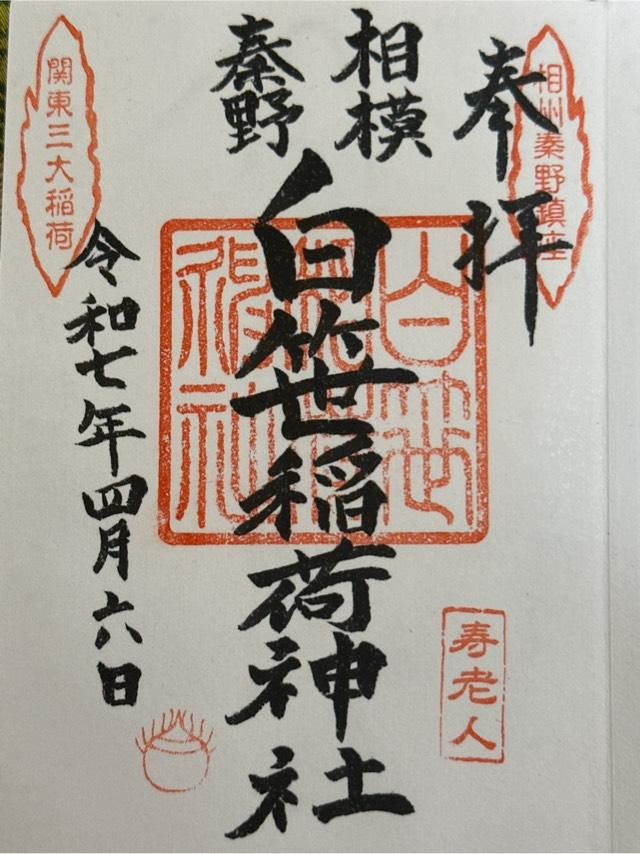 奉拝
相州秦野鎮座
相模
秦野
白笹稲荷神社
寿老人
関東三大稲荷
令和七年四月六日